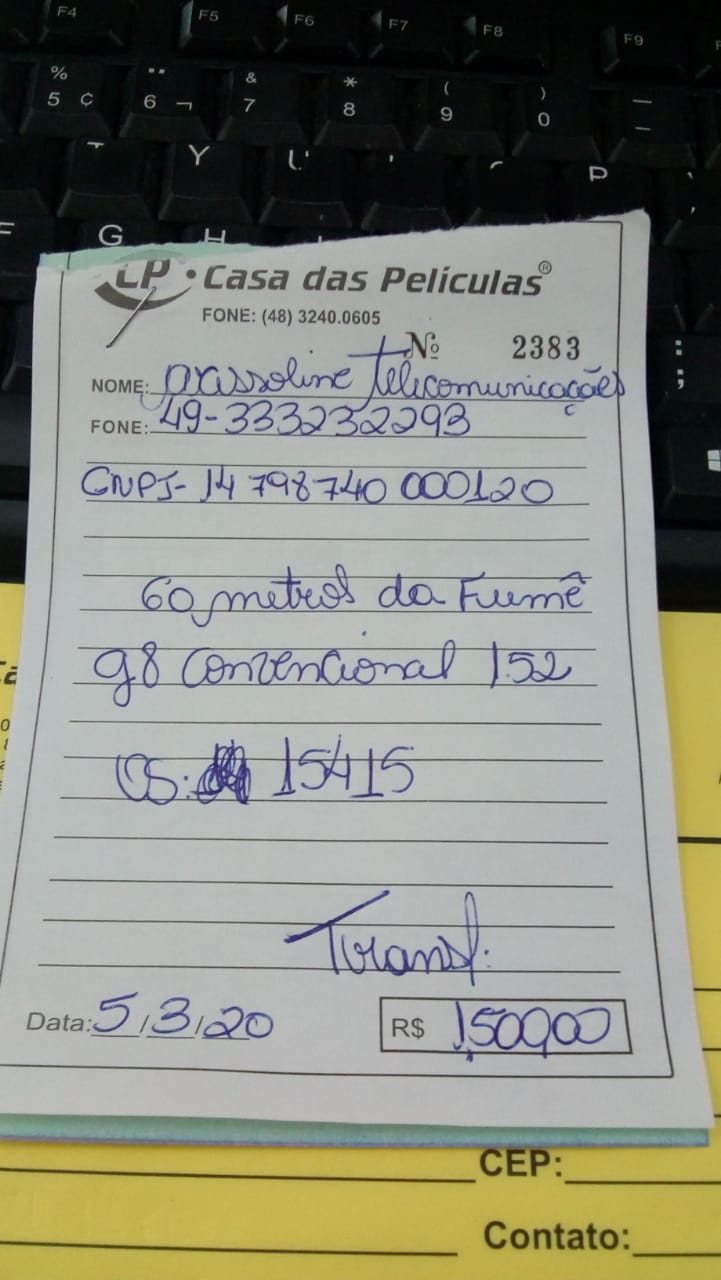 F4 F5 F6 F7 F8 F9
% 5 ¢ ¨ 6 ¬ & 7 * 8 ( 9 ) 0 —
T Y U P
G H
CP • Casa das Películas®
FONE: (48) 3240.0605
Nº 2383
NOME: Telecomunicações
FONE: 49-333232293
CNPJ- 14 798740 000120
60 metros da Fumê
g8 Convencional 1.52
OS: 15415
Transf.
Data: 5/3/20 R$ 1.500,00
CEP:
Contato: